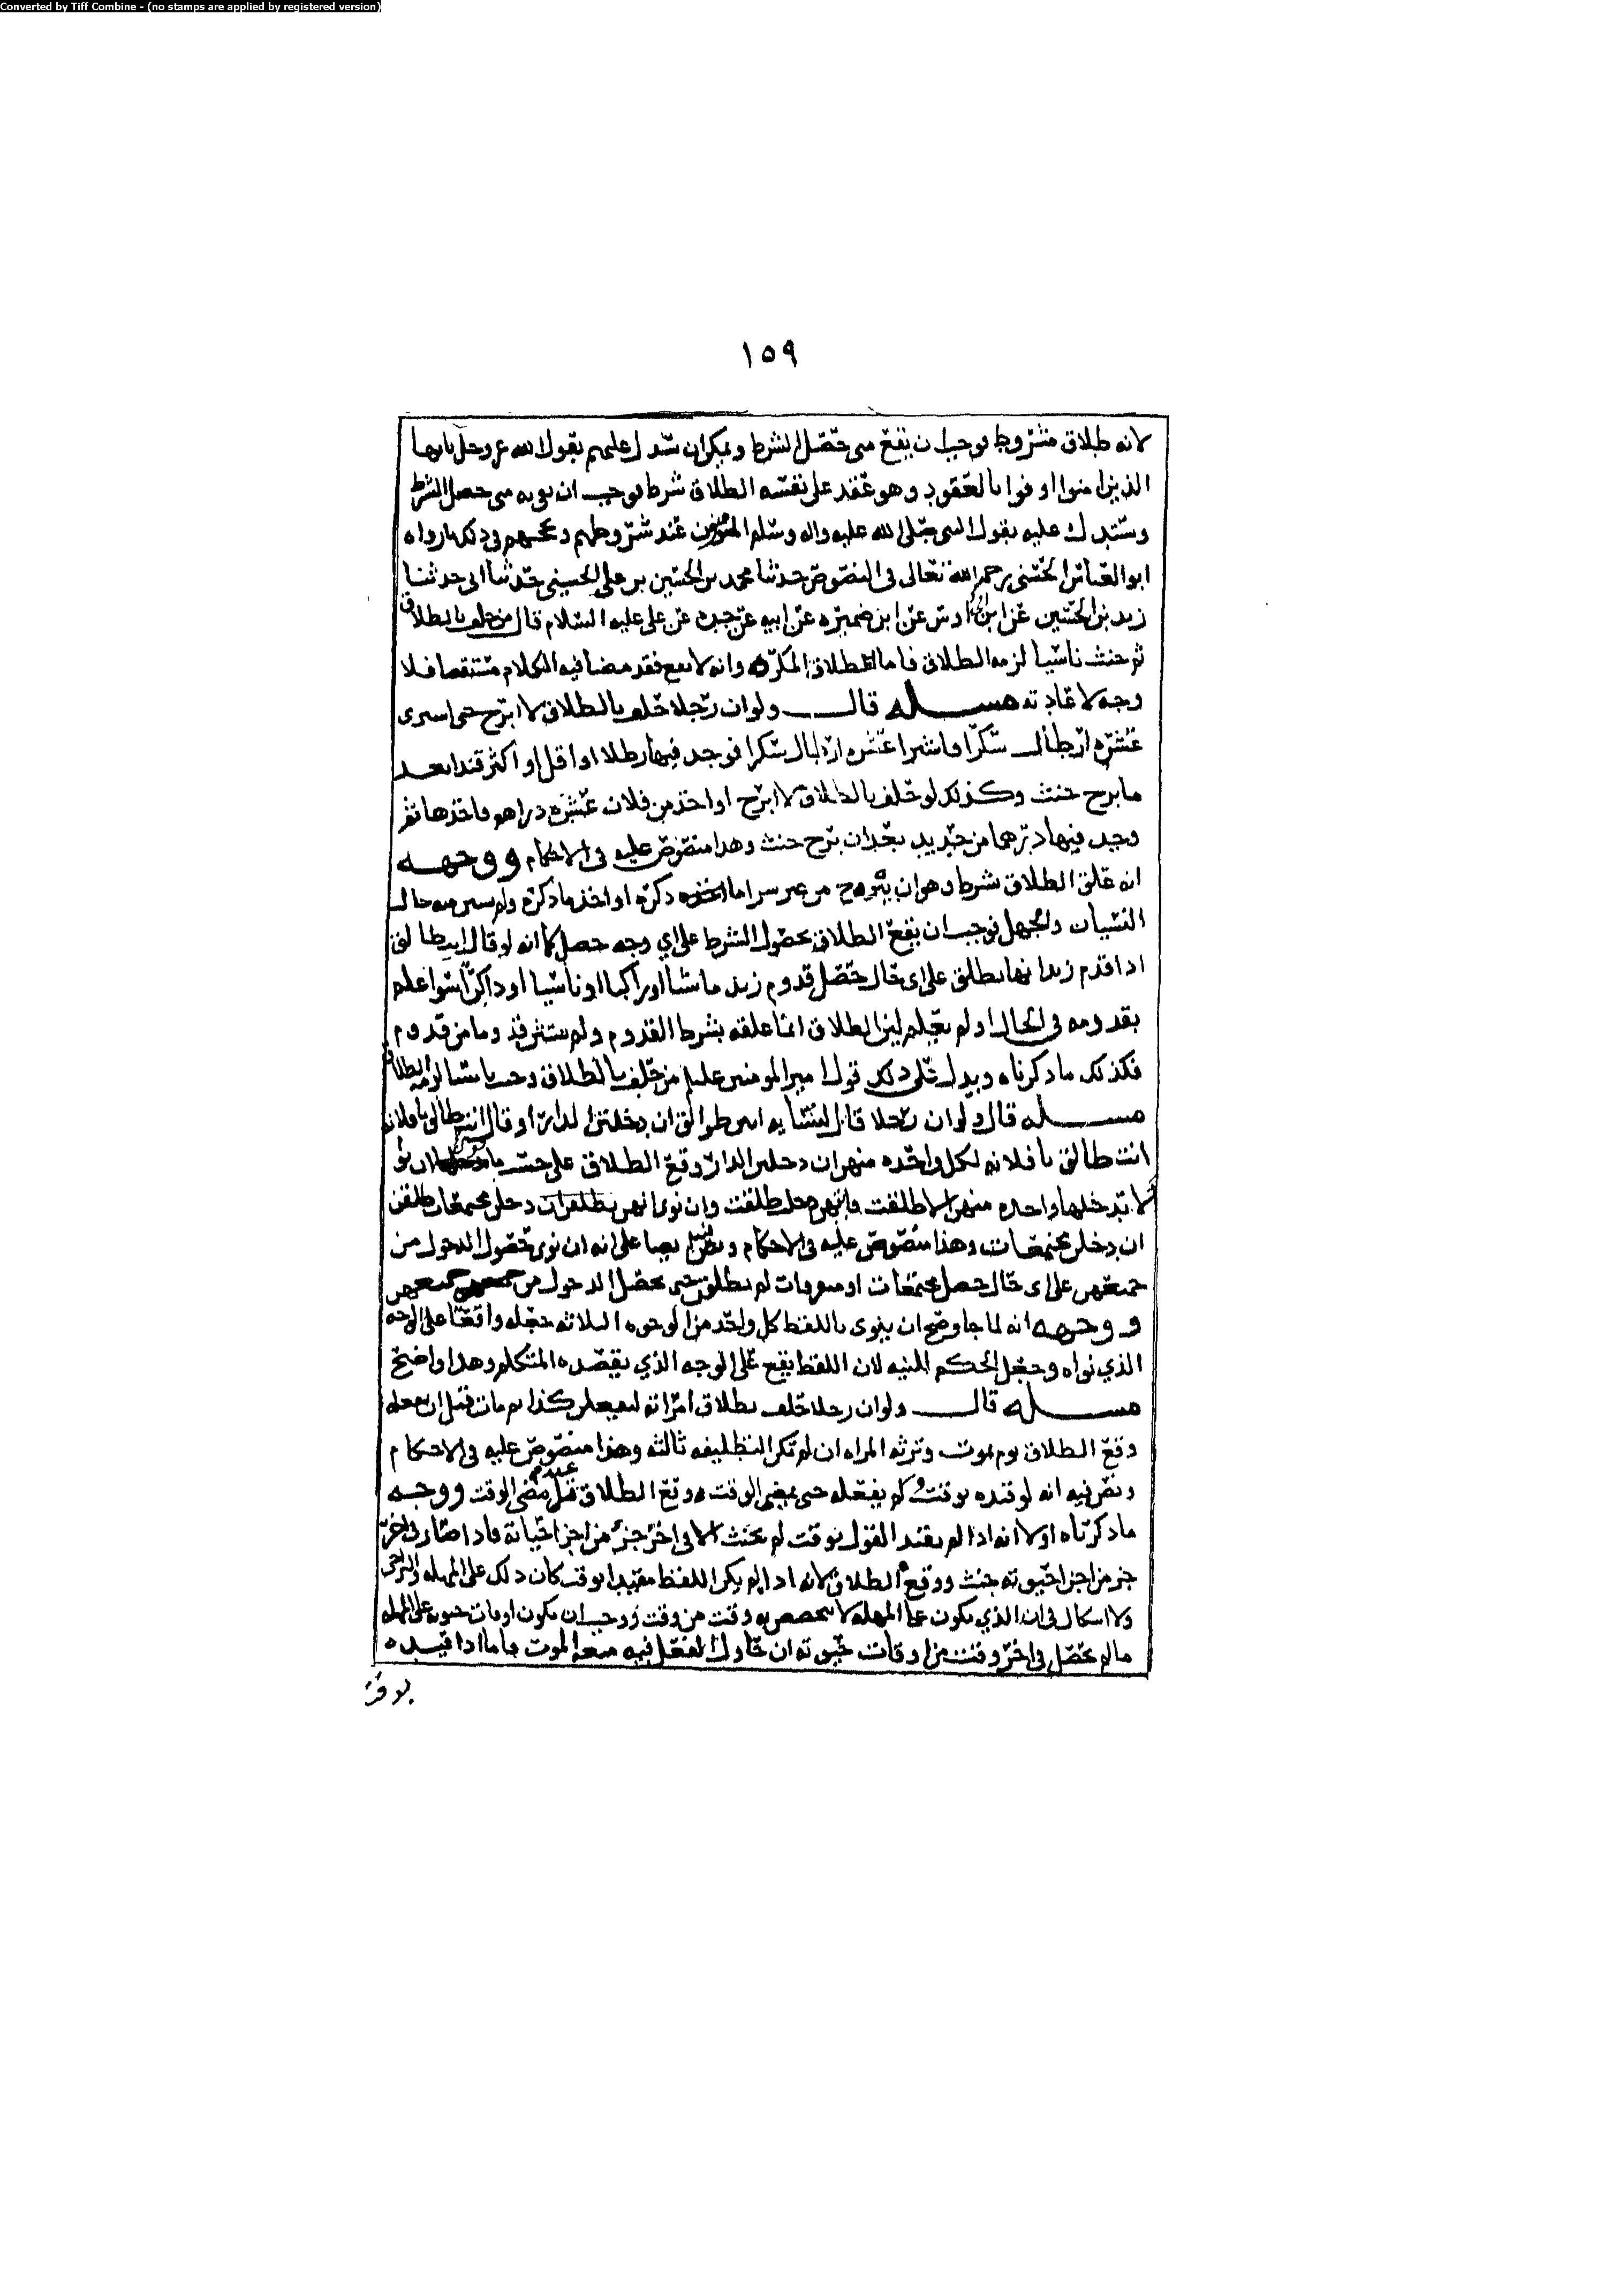 Converted by Tiff Combine - (no stamps are applied by registered version)
١٥٩
لانه طلاق مشروط يوجب ان يقع متى حصل الشرط ويمكن ان يستدل عليهم بقول الله عز وجل يا ايها
الذين امنوا اوفوا بالعقود وهو عقد على نفسه الطلاق شرط يوجب ان يوبه متى حصل الشرط
ويستدل عليه بقول النبي صلى الله عليه واله وسلم المؤمنون عند شروطهم ومحيهم في ذلك ما رواه
ابو العباس الحسني رحمه الله تعالى في النصوص حدثنا محمد بن الحسين بن علي الحسيني حدثنا ابي حدثنا
زيد بن الحسين عن ابن ابي اويس عن ابن ضميره عن ابيه عن جده عن علي عليه السلام قال من حلف بالطلاق
ثم حنث ناسيا لزمه الطلاق فاما الطلاق المكره وانه لا يقع فقد مضا فيه الكلام مستقصا فلا
وجه لاعادته مسله قال ولو ان رجلا حلف بالطلاق لا ابرح حتى اشترى
عشره ارطال سكرا فاشترا عشره ارطال سكرا فوجد فيها رطلا او اقل او اكثر قندا بعد
ما برح حنث وكذلك لو حلف بالطلاق لا ابرح او اخذ من فلان عشره دراهم فاخذها ثم
وجد فيها درهما من حديد بعد ان برح حنث وهذا منصوص عليه في الاحكام ووجهه
انه علق الطلاق بشرط وهو ان يبرح من غير شرا ما ذكره او اخذ ما ذكره ولم يستثن منه حال
النسيان والجهل فوجب ان يقع الطلاق بحصول الشرط على اي وجه حصل كما انه لو قال انت طالق
اذا قدم زيد انها تطلق على اي حال حصل قدوم زيد ماشيا او راكبا او ناسيا او ذاكرا سوا علم
بقدومه في الحال او لم يعلم لان الطلاق انما علقه بشرط القدوم ولم يستثن قدوما من قدوم
فكذلك ما ذكرناه ويدل على ذلك قول امير المومنين عليلم من حلف بالطلاق وحنث ناسيا لزمه الطلاق
مسله قال ولو ان رجلا قال لنسايه انتن طوالق ان دخلتن الدار او قال انت طالق يا فلانه
انت طالق يا فلانه لكل واحده منهن ان دخلتن الدار وقع الطلاق على حسب ما نوى ان نوى
لا تدخلها واحده منهن الا طلقت فايتهن دخلت طلقت وان نوى انهن يطلقن ان دخلن مجتمعات طلقن
ان دخلن مجتمعات وهذا منصوص عليه في الاحكام ونص ايضا على انه ان نوى حصول الدخول من
جميعهن على اي حال حصل مجتمعات او متفرقات لم يطلقن حتى يحصل الدخول من جميعهن
ووجهه انه لما جاز وصح ان ينوى باللفظ كل واحد من الوجوه الثلاثه جعله واقعا على الوجه
الذي نواه وجعل الحكم للنيه لان اللفظ يقع على الوجه الذي يقصده المتكلم وهذا واضح
مسله قال ولو ان رجلا حلف بطلاق امراته ليفعلن كذا ثم مات قبل ان يفعله
وقع الطلاق يوم يموت وترثه المراه ان لم تكن التطليقه ثالثه وهذا منصوص عليه في الاحكام
ونص فيه انه لو قيده بوقت ولم يفعله حتى يمضي الوقت وقع الطلاق عند مضي الوقت ووجه
ما ذكرناه اولا انه اذا لم يقيد القول بوقت لم يحنث الا في اخر جزء من اجزا حياته فاذا صار في اخر
جز من اجزا حيوته حنث ووقع الطلاق لانه اذا لم يكن اللفظ مقيدا بوقت كان ذلك على المهله والتراخي
ولا اشكال في ان الذي يكون على المهله لا يتخصص به وقت من وقت ووجب ان يكون اوقات حيوته على المهله
ما لم يحصل في اخر وقت من اوقات حيوته ان حاول الفعل فيه منعه الموت فاما اذا قيده
بوقت